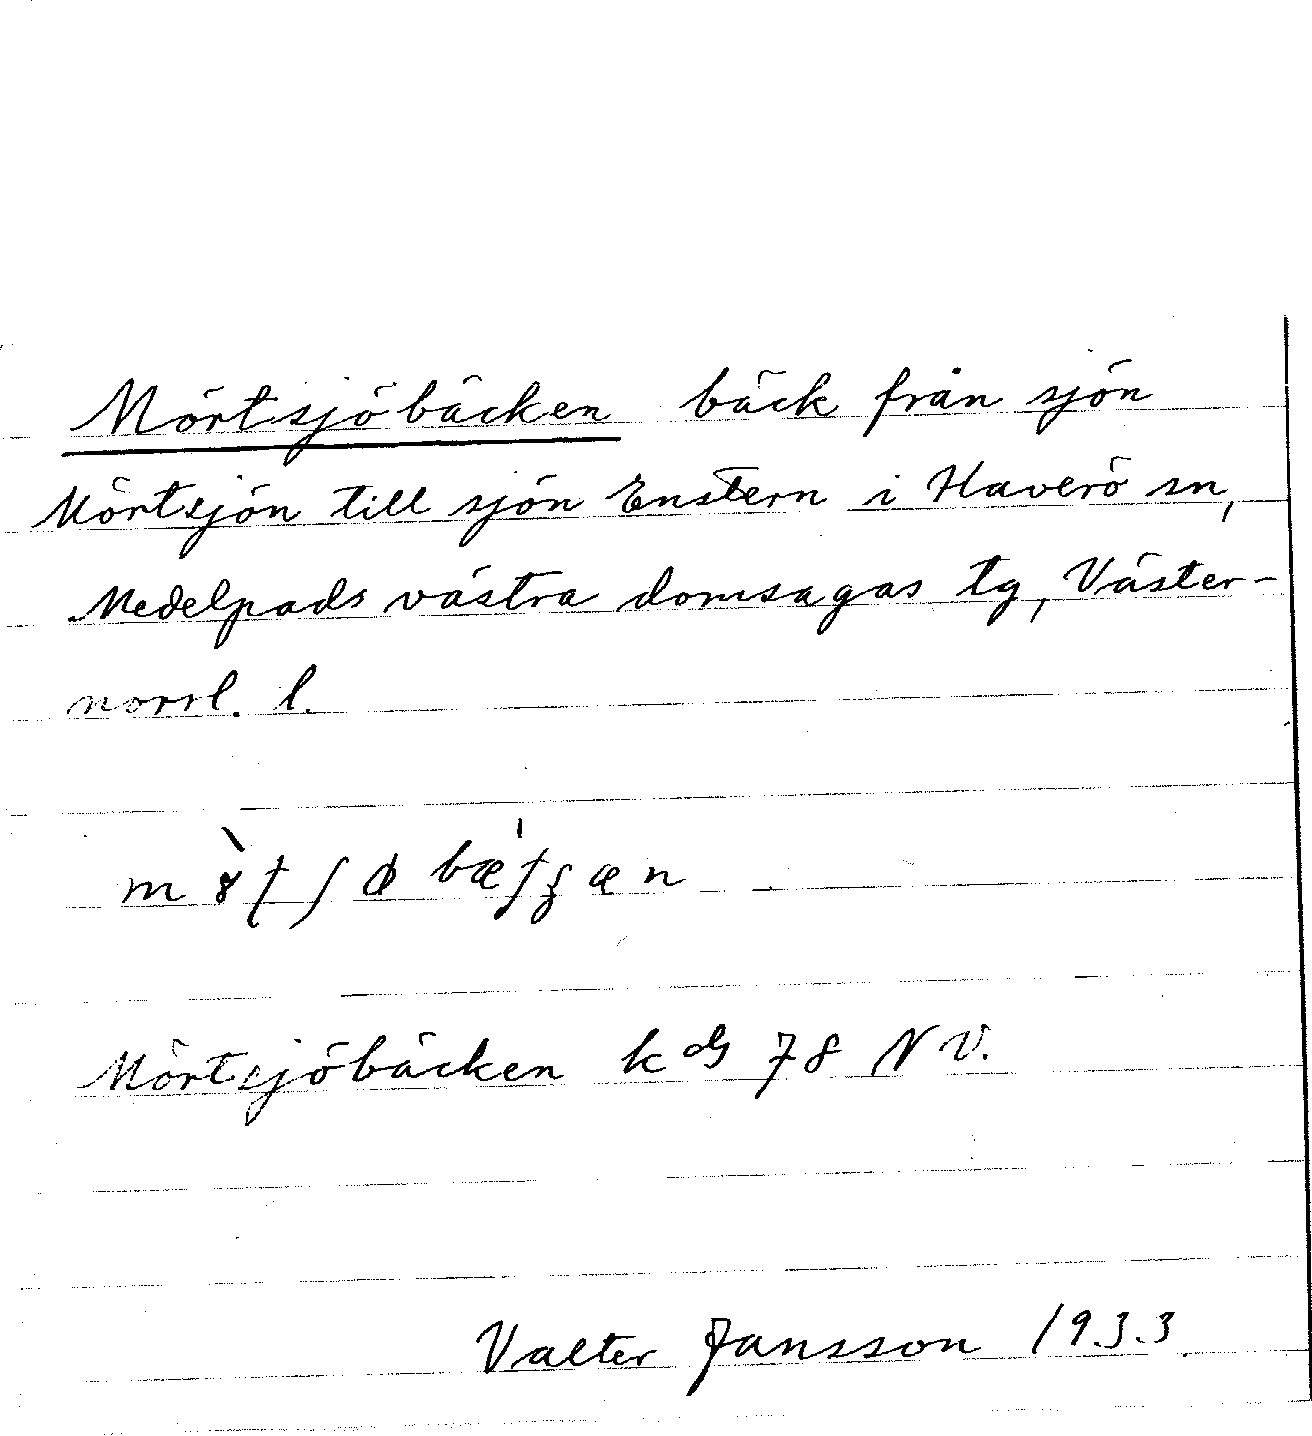 Mörtsjöbäcken bäck från sjön
Mörtsjön till sjön Enstern i Haverö sn,
Medelpads västra domsagas tg, Väster-
norrl. l.
Mörtsjöbäcken kbl 78 NV.
Valter Jansson 1933.